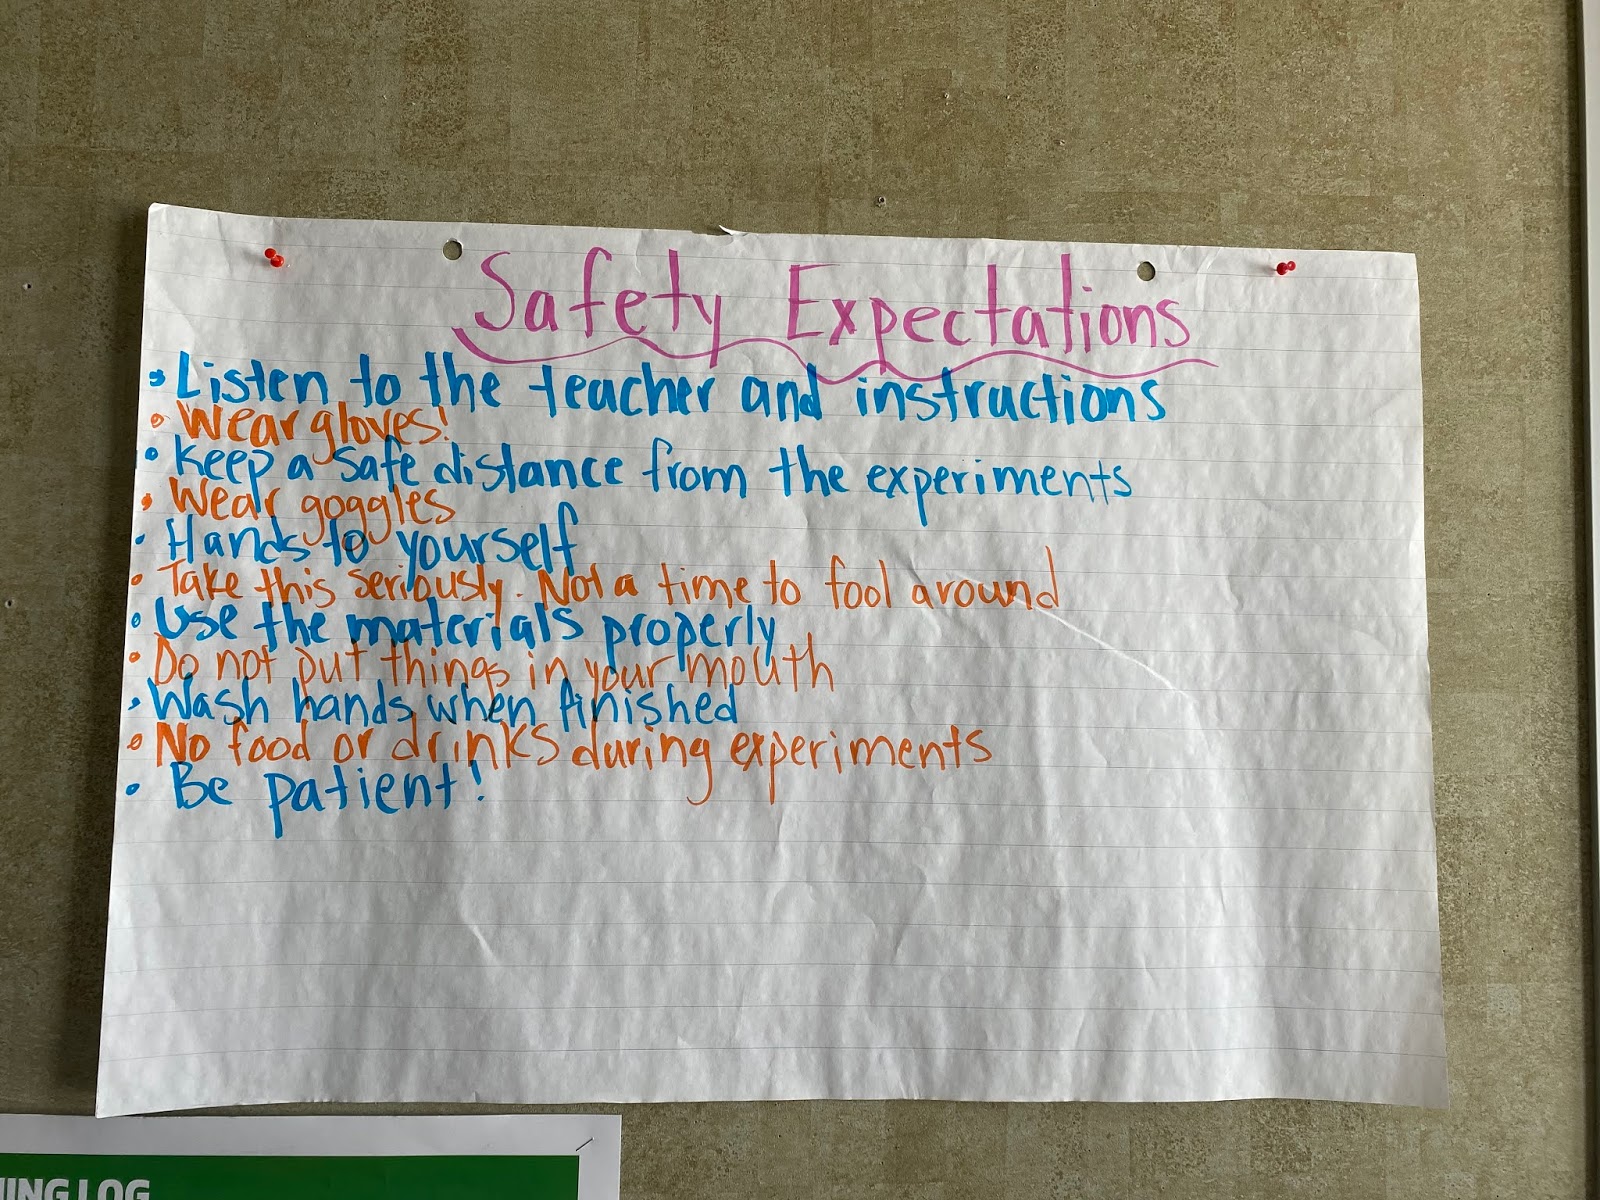 Safety Expectations
• Listen to the teacher and instructions
• Wear gloves!
• Keep a safe distance from the experiments
• Wear goggles
• Hands to yourself
• Take this seriously. Not a time to fool around
• Use the materials properly
• Do not put things in your mouth
• Wash hands when finished
• No food or drinks during experiments
• Be patient!
ING LOG